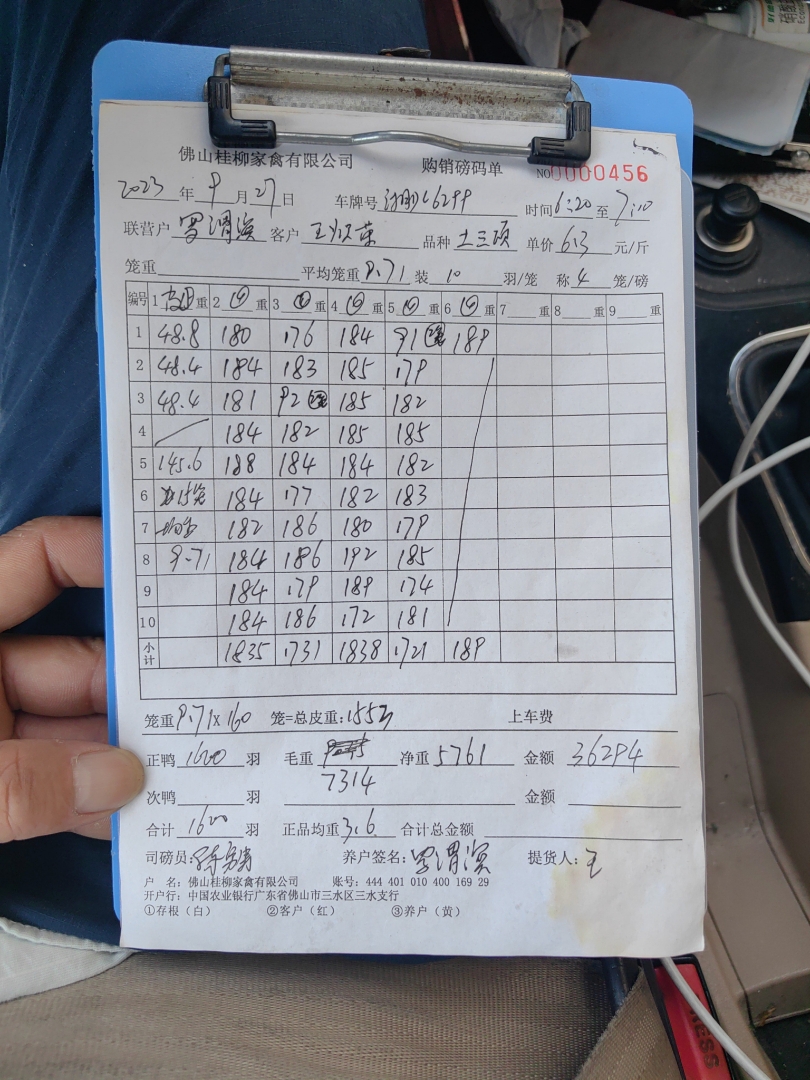 佛山桂柳家禽有限公司 购销磅码单 NO 0000456
2023 年 9 月 27 日 车牌号 6299 时间 6:20 至 7:10
联营户 罗渭滨 客户 王 品种 土三项 单价 6.3 元/斤
笼重 平均笼重 9.71 装 10 羽/笼 称 4 笼/磅
编号 1 重 2 ④ 重 3 ④ 重 4 ④ 重 5 ④ 重 6 ④ 重 7 重 8 重 9 重
1 48.8 180 176 184 91 189
2 48.4 184 183 185 179
3 48.4 181 92 185 182
4 184 182 185 185
5 145.6 188 184 184 182
6 184 177 182 183
7 182 186 180 179
8 9.71 184 186 192 185
9 184 179 189 174
10 184 186 172 181
小计 1835 1731 1838 1721 189
笼重 9.71x160 笼=总皮重: 1553 上车费
正鸭 1600 羽 毛重 净重 5761 金额 36294
7314
次鸭 羽 金额
合计 1600 羽 正品均重 3.6 合计总金额
司磅员: 养户签名: 罗渭滨 提货人: 王
户 名: 佛山桂柳家禽有限公司 账号: 444 401 010 400 169 29
开户行: 中国农业银行广东省佛山市三水区三水支行
①存根（白） ②客户（红） ③养户（黄）